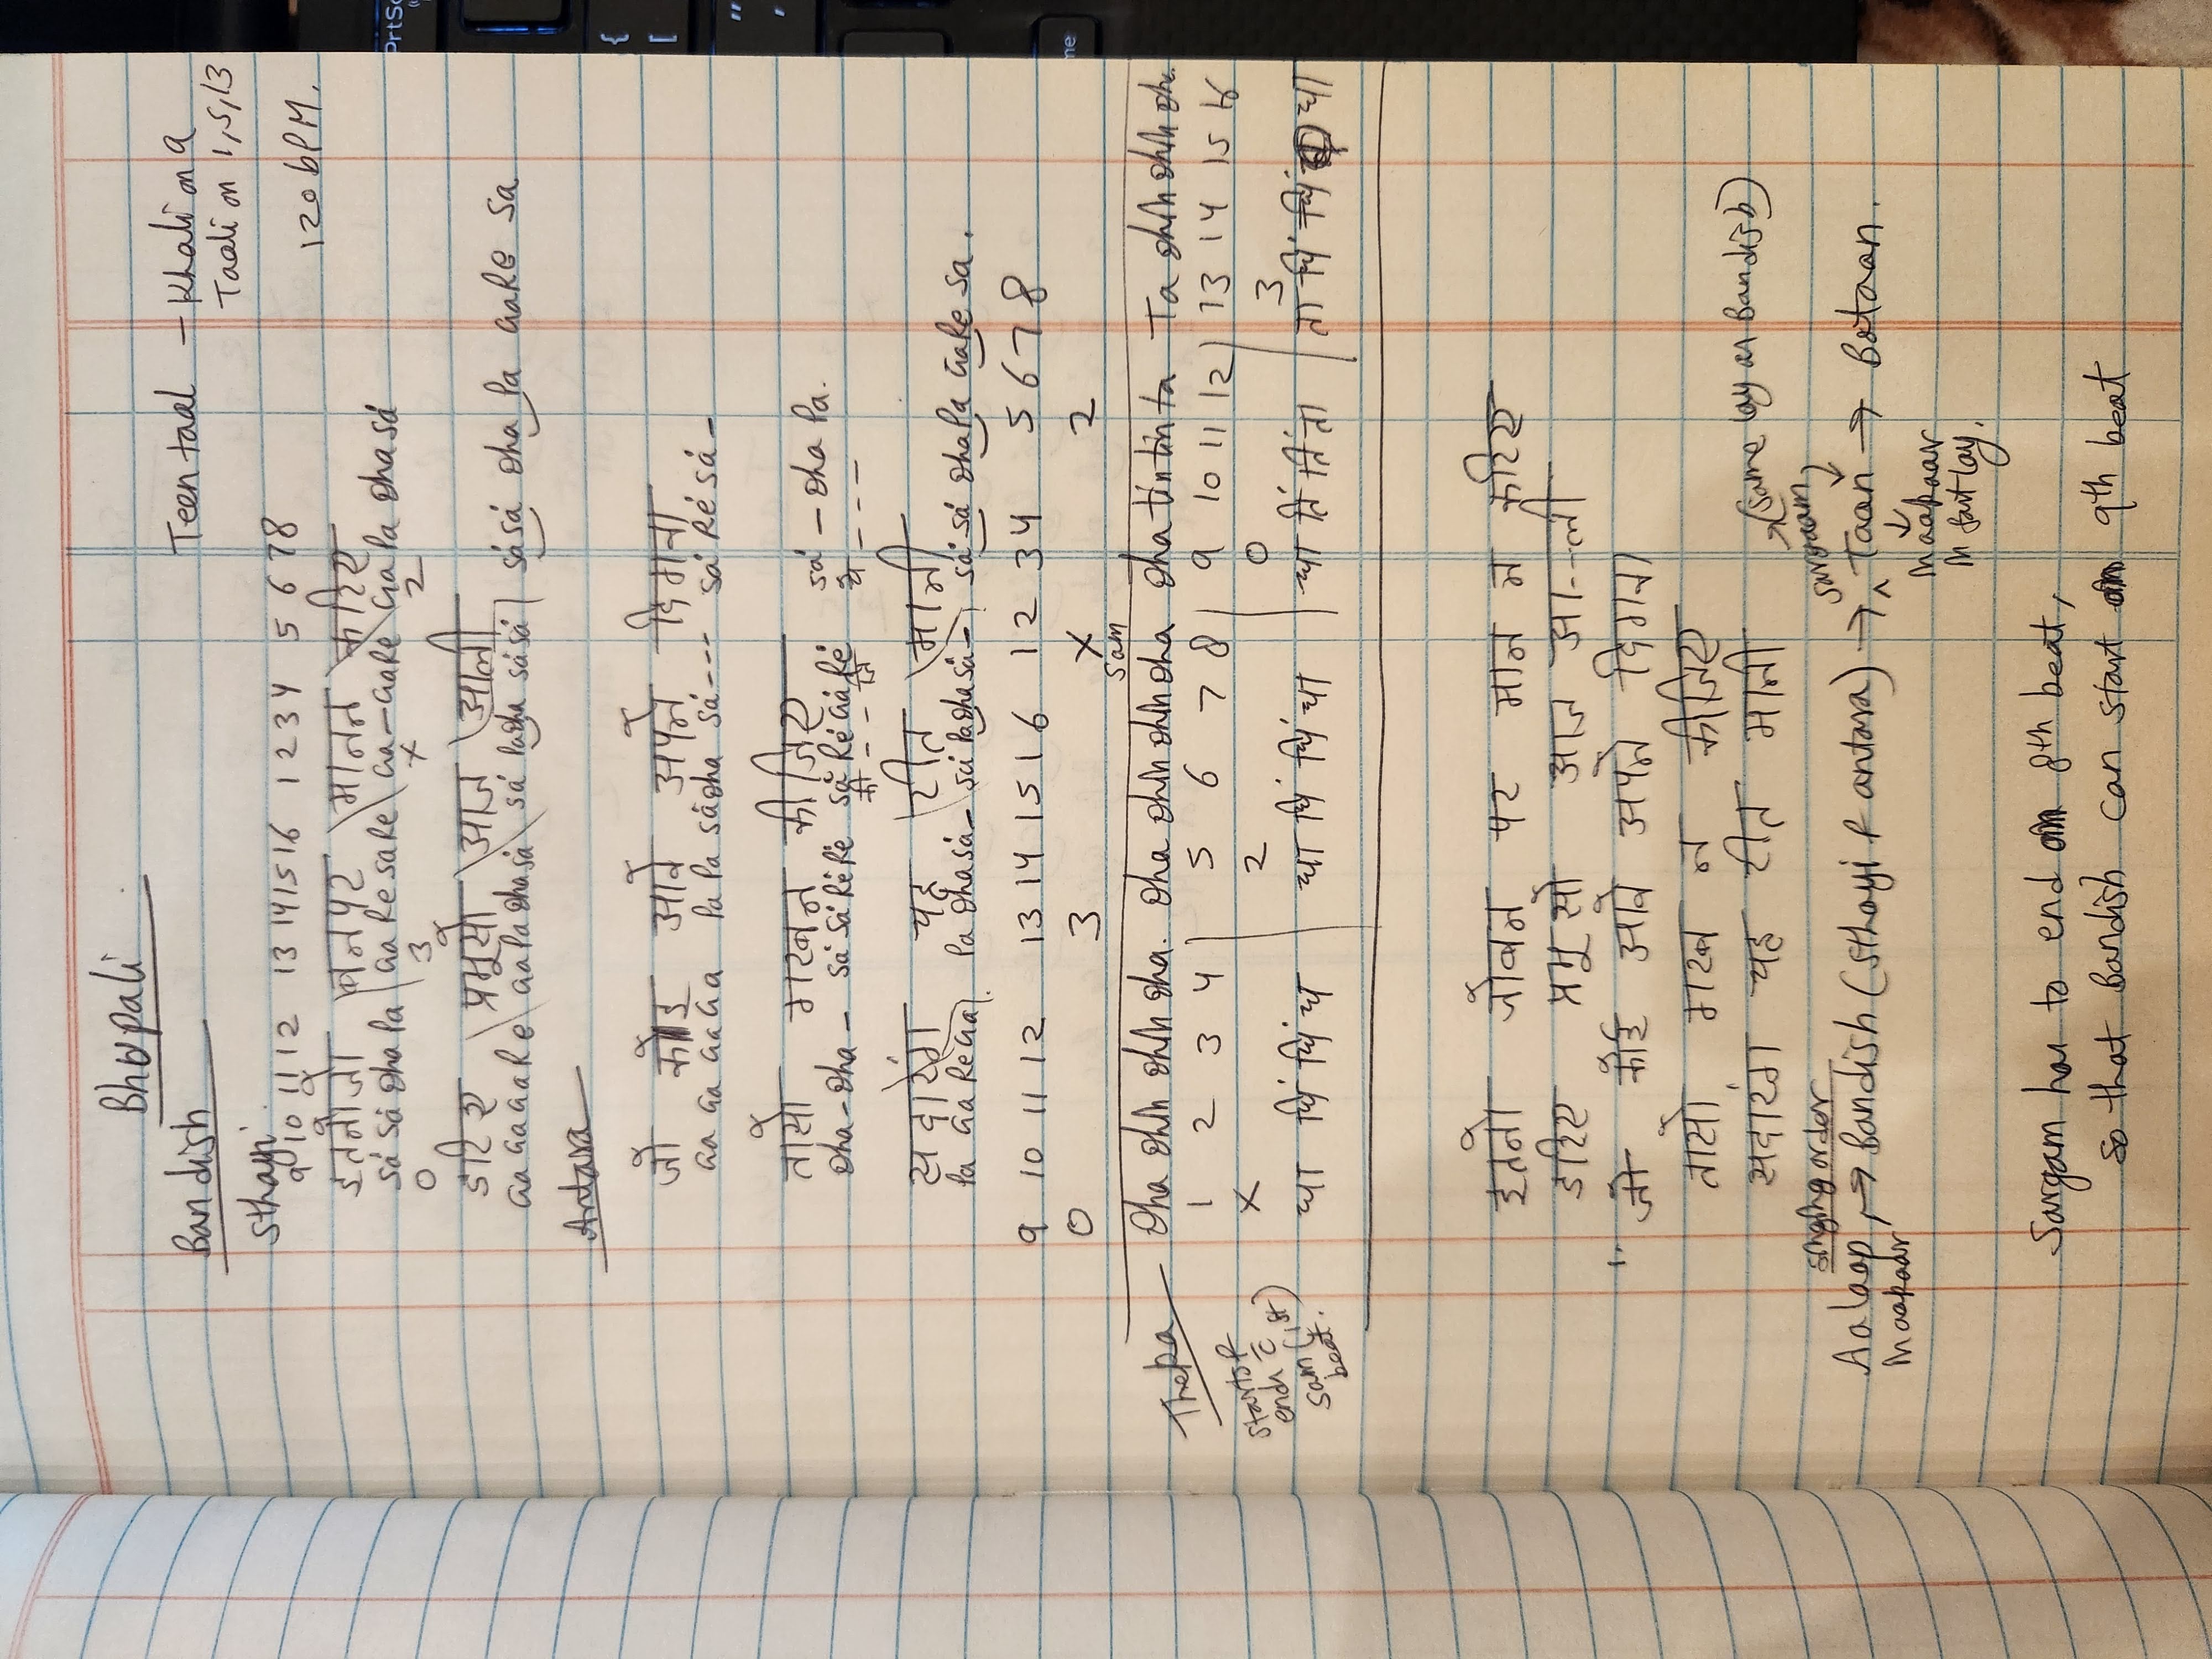 Bhopali
Bandish
Teentaal — Khali on 9
Taali on 1, 5, 13
Sthayi
9 10 11 12 13 14 15 16 1 2 3 4 5 6 7 8
120 bPM.
इतनोजो \ बनपर \ मानन \ करिए
Sȧ Sȧ Dha Pa | Ga Re Sa Re \ Ga — Ga Re \ Ga Pa Dha Sȧ
0 3 x 2
डरिए \ प्रभूसो \ आज \ आली
Ga Ga Ga Re \ Ga Pa Dha Sȧ \ Sȧ PaDha Sȧ Sȧ | SȧSȧ Dha Pa GaRe Sa
Antara
जो कोइ आवे अपने ढिगवा
Ga Ga Ga Ga Pa Pa Sȧ Dha Sȧ - - - Sȧ Rė Sȧ —
तासो गरबन कीजिए
Dha — Dha — Sȧ Sȧ Rė Rė Sȧ Rė Gȧ Rė Sȧ — Dha Pa.
की - - जि ये - - - -
सदारंग यह \ रीत \ मानी
Pa Ga Re Ga Pa Dha Sȧ — Sȧ PaDha Sȧ — Sȧ Sȧ DhaPa GaRe Sa.
9 10 11 12 13 14 15 16 1 2 3 4 5 6 7 8
0 3 x 2
Sam
Theka — Dha Dhin Dhin Dha. Dha Dhin Dhin Dha Dha tin tin ta Ta Dhin Dhin Dha.
1 2 3 4 | 5 6 7 8 | 9 10 11 12 | 13 14 15 16
x 2 0 3
starts &
ends c̄
Sam (1st)
beat.
धा धिं धिं ध | धा धिं धिं धा | धा तिं तिं ता | ता धिं धिं धा
इतनो जोबन पर मान न करिए
डरिए प्रभू सो आज आ--ली
जो कोई आवे अपने ढिगवा
तासो गरब न कीजिए
सदारंग यह रीत मानी
(same lay as Bandish)
singing order
sargaam
Aalaap, → Bandish (Sthayi & antara) → ^ Taan → Botaan.
In aakaar
In aakaar
In fast lay.
Sargam has to end on 8th beat,
so that Bandish can start on 9th beat